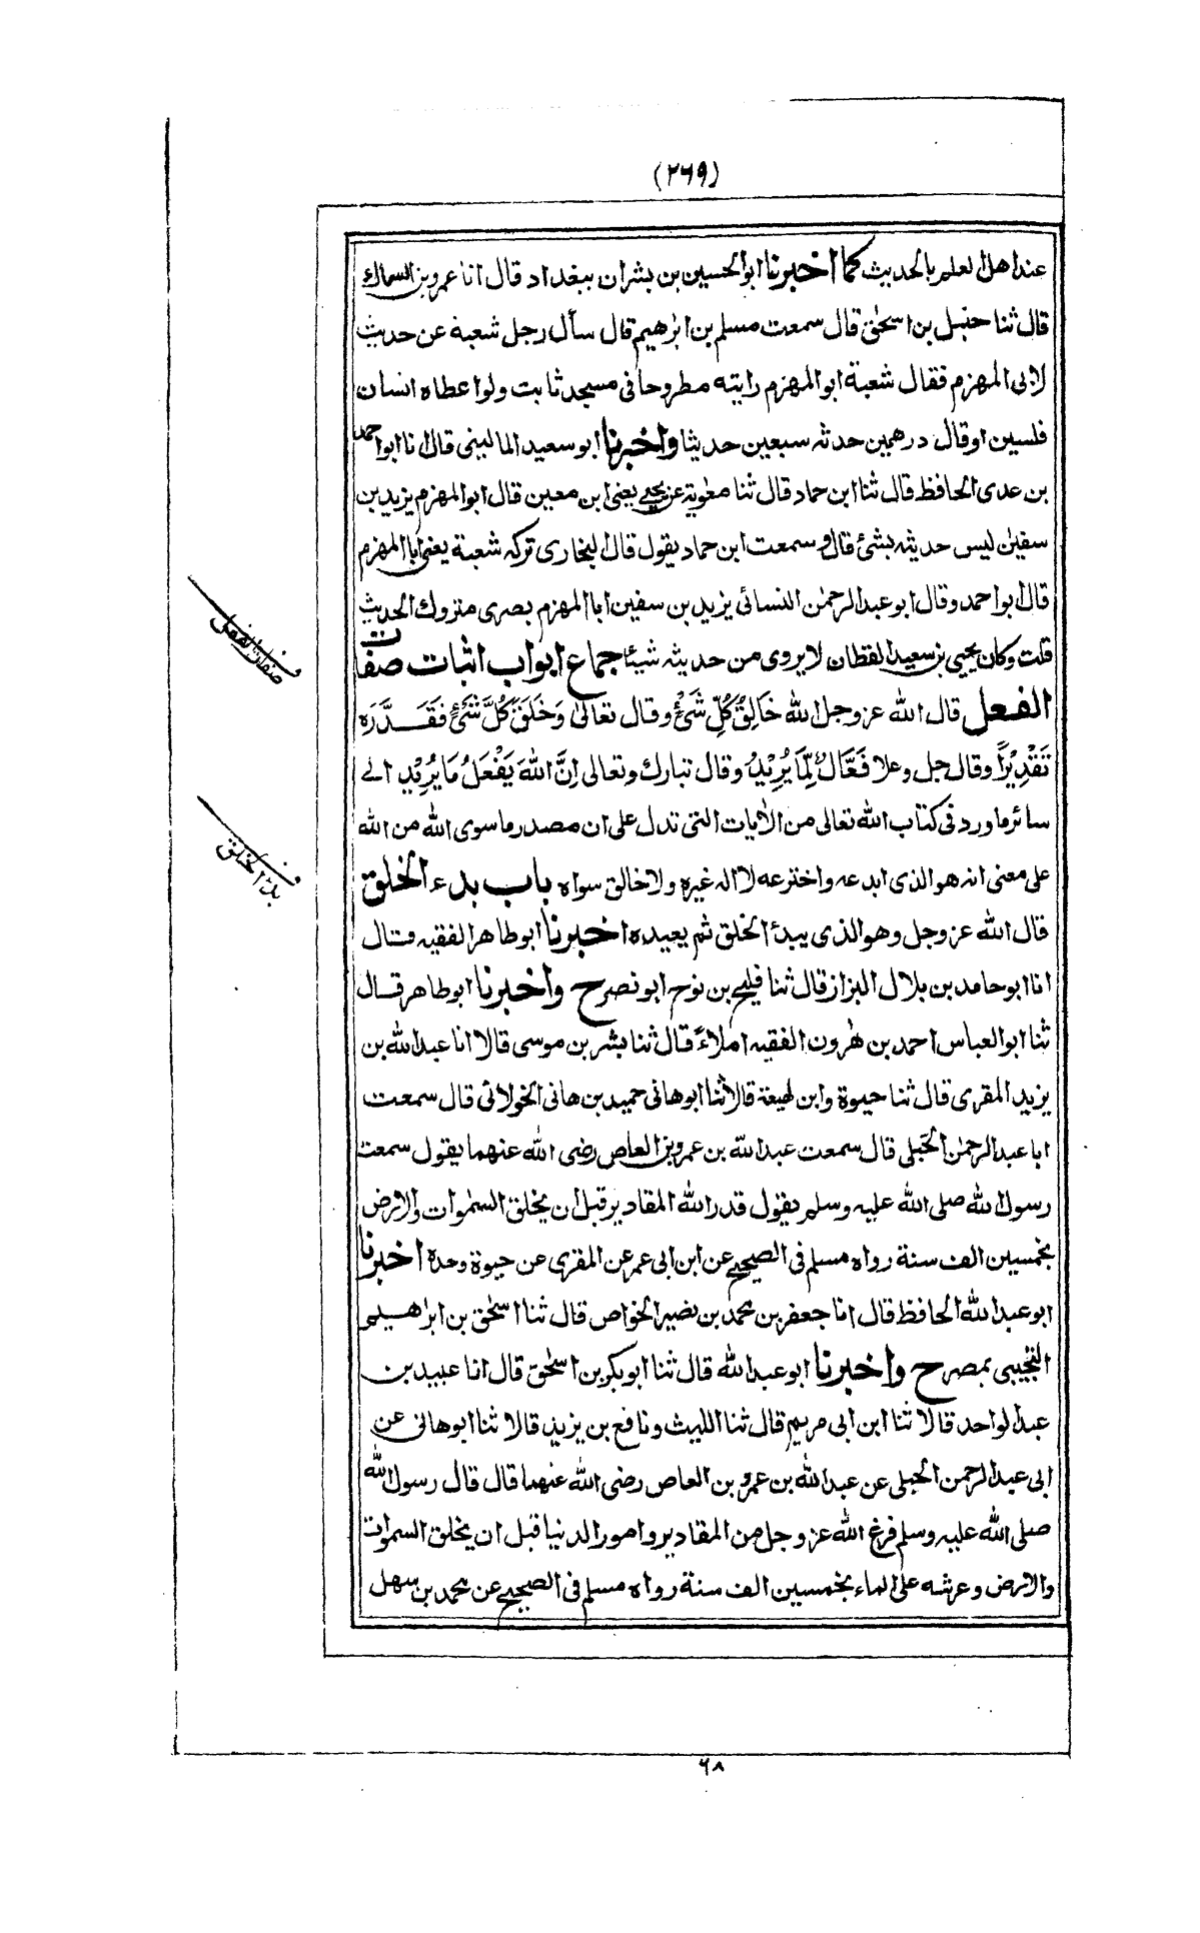 (٢٦٩)
عند اهل العلم بالحديث كما اخبرنا ابو الحسين بن بشران ببغداد قال انا عمرو بن السماك
قال ثنا حنبل بن اسحٰق قال سمعت مسلم بن ابرهيم قال سأل رجل شعبة عن حديث
لابى المهزم فقال شعبة ابو المهزم رايته مطروحا فى مسجد ثابت ولو اعطاه انسان
فلسين او قال درهمين حدثه سبعين حديثا واخبرنا ابو سعيد المالينى قال انا ابو احمد
بن عدى الحافظ قال ثنا ابن حماد قال ثنا معٰوية عن يحيى يعنى ابن معين قال ابو المهزم يزيد بن
سفيٰن ليس حديثه بشئ قال وسمعت ابن حماد يقول قال البخارى تركه شعبة يعنى ابا المهزم
قال ابو احمد وقال ابو عبد الرحمٰن النسائى يزيد بن سفين ابا المهزم بصرى متروك الحديث
قلت وكان يحيى بن سعيد القطان لا يروى من حديثه شيئا جماع ابواب اثبات صفات
الفعل قال الله عز وجل الله خَالِقُ كُلِّ شَىْءٍ وقال تعالىٰ وَخَلَقَ كُلَّ شَىْءٍ فَقَدَّرَهٗ
تَقْدِيْرًا وقال جل وعلا فَعَّالٌ لِّمَا يُرِيْدُ وقال تبارك وتعالى اِنَّ اللهَ يَفْعَلُ مَا يُرِيْد الى
سائر ما ورد فى كتاب الله تعالى من الاٰيات التى تدل على ان مصدر ما سوى الله من الله
على معنى انه هو الذى ابدعه واخترعه لا اله غيره ولا خالق سواه باب بدء الخلق
قال الله عز وجل وهو الذى يبدئ الخلق ثم يعيده اخبرنا ابو طاهر الفقيه قال
انا ابو حامد بن بلال البزاز قال ثنا فليح بن نوح ابو نصر ح واخبرنا ابو طاهر قال
ثنا ابو العباس احمد بن هٰرون الفقيه املاءً قال ثنا بشر بن موسى قالا انا عبد الله بن
يزيد المقرى قال ثنا حيوة وابن لهيعة قالا ثنا ابو هانى حميد بن هانى الخولانى قال سمعت
ابا عبد الرحمٰن الحبلى قال سمعت عبد الله بن عمرو بن العاص رضى الله عنهما يقول سمعت
رسول الله صلى الله عليه وسلم يقول قدر الله المقادير قبل ان يخلق السمٰوات والارض
بخمسين الف سنة رواه مسلم فى الصحيح عن ابن ابى عمر عن المقرى عن حيوة وحده اخبرنا
ابو عبد الله الحافظ قال انا جعفر بن محمد بن نصير الخواص قال ثنا اسحٰق بن ابراهيم
التجيبى بمصر ح واخبرنا ابو عبد الله قال ثنا ابو بكر بن اسحٰق قال انا عبيد بن
عبد الواحد قالا ثنا ابن ابى مريم قال ثنا الليث ونافع بن يزيد قالا ثنا ابو هانى عن
ابى عبد الرحمن الحبلى عن عبد الله بن عمرو بن العاص رضى الله عنهما قال قال رسول الله
صلى الله عليه وسلم فرغ الله عز وجل من المقادير وامور الدنيا قبل ان يخلق السموات
والارض وعرشه على الماء بخمسين الف سنة رواه مسلم فى الصحيح عن محمد بن سهل
صفات الفعل
بدء الخلق
٦٨